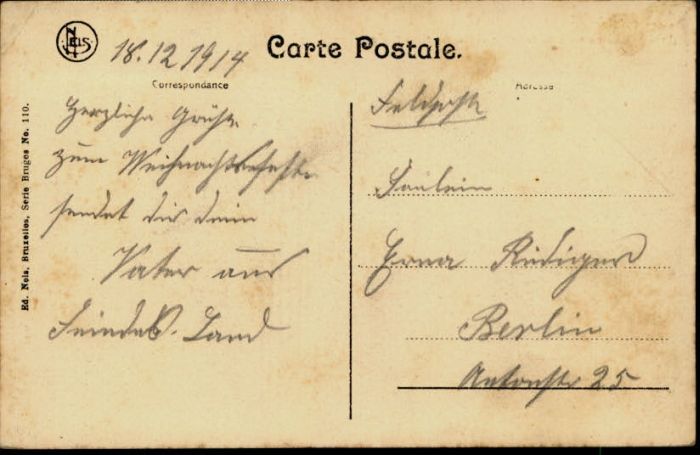 NELS
18.12.1914
Carte Postale.
Correspondance
Adresse
Ed. Nels, Bruxelles, Serie Bruges No. 110.
Herzliche Grüße
zum Weihnachtsfeste
sendet dir dein
Vater aus
Feindes-Land
Feldpost
Fräulein
Erna Rüdiger
Berlin
Antonstr 25